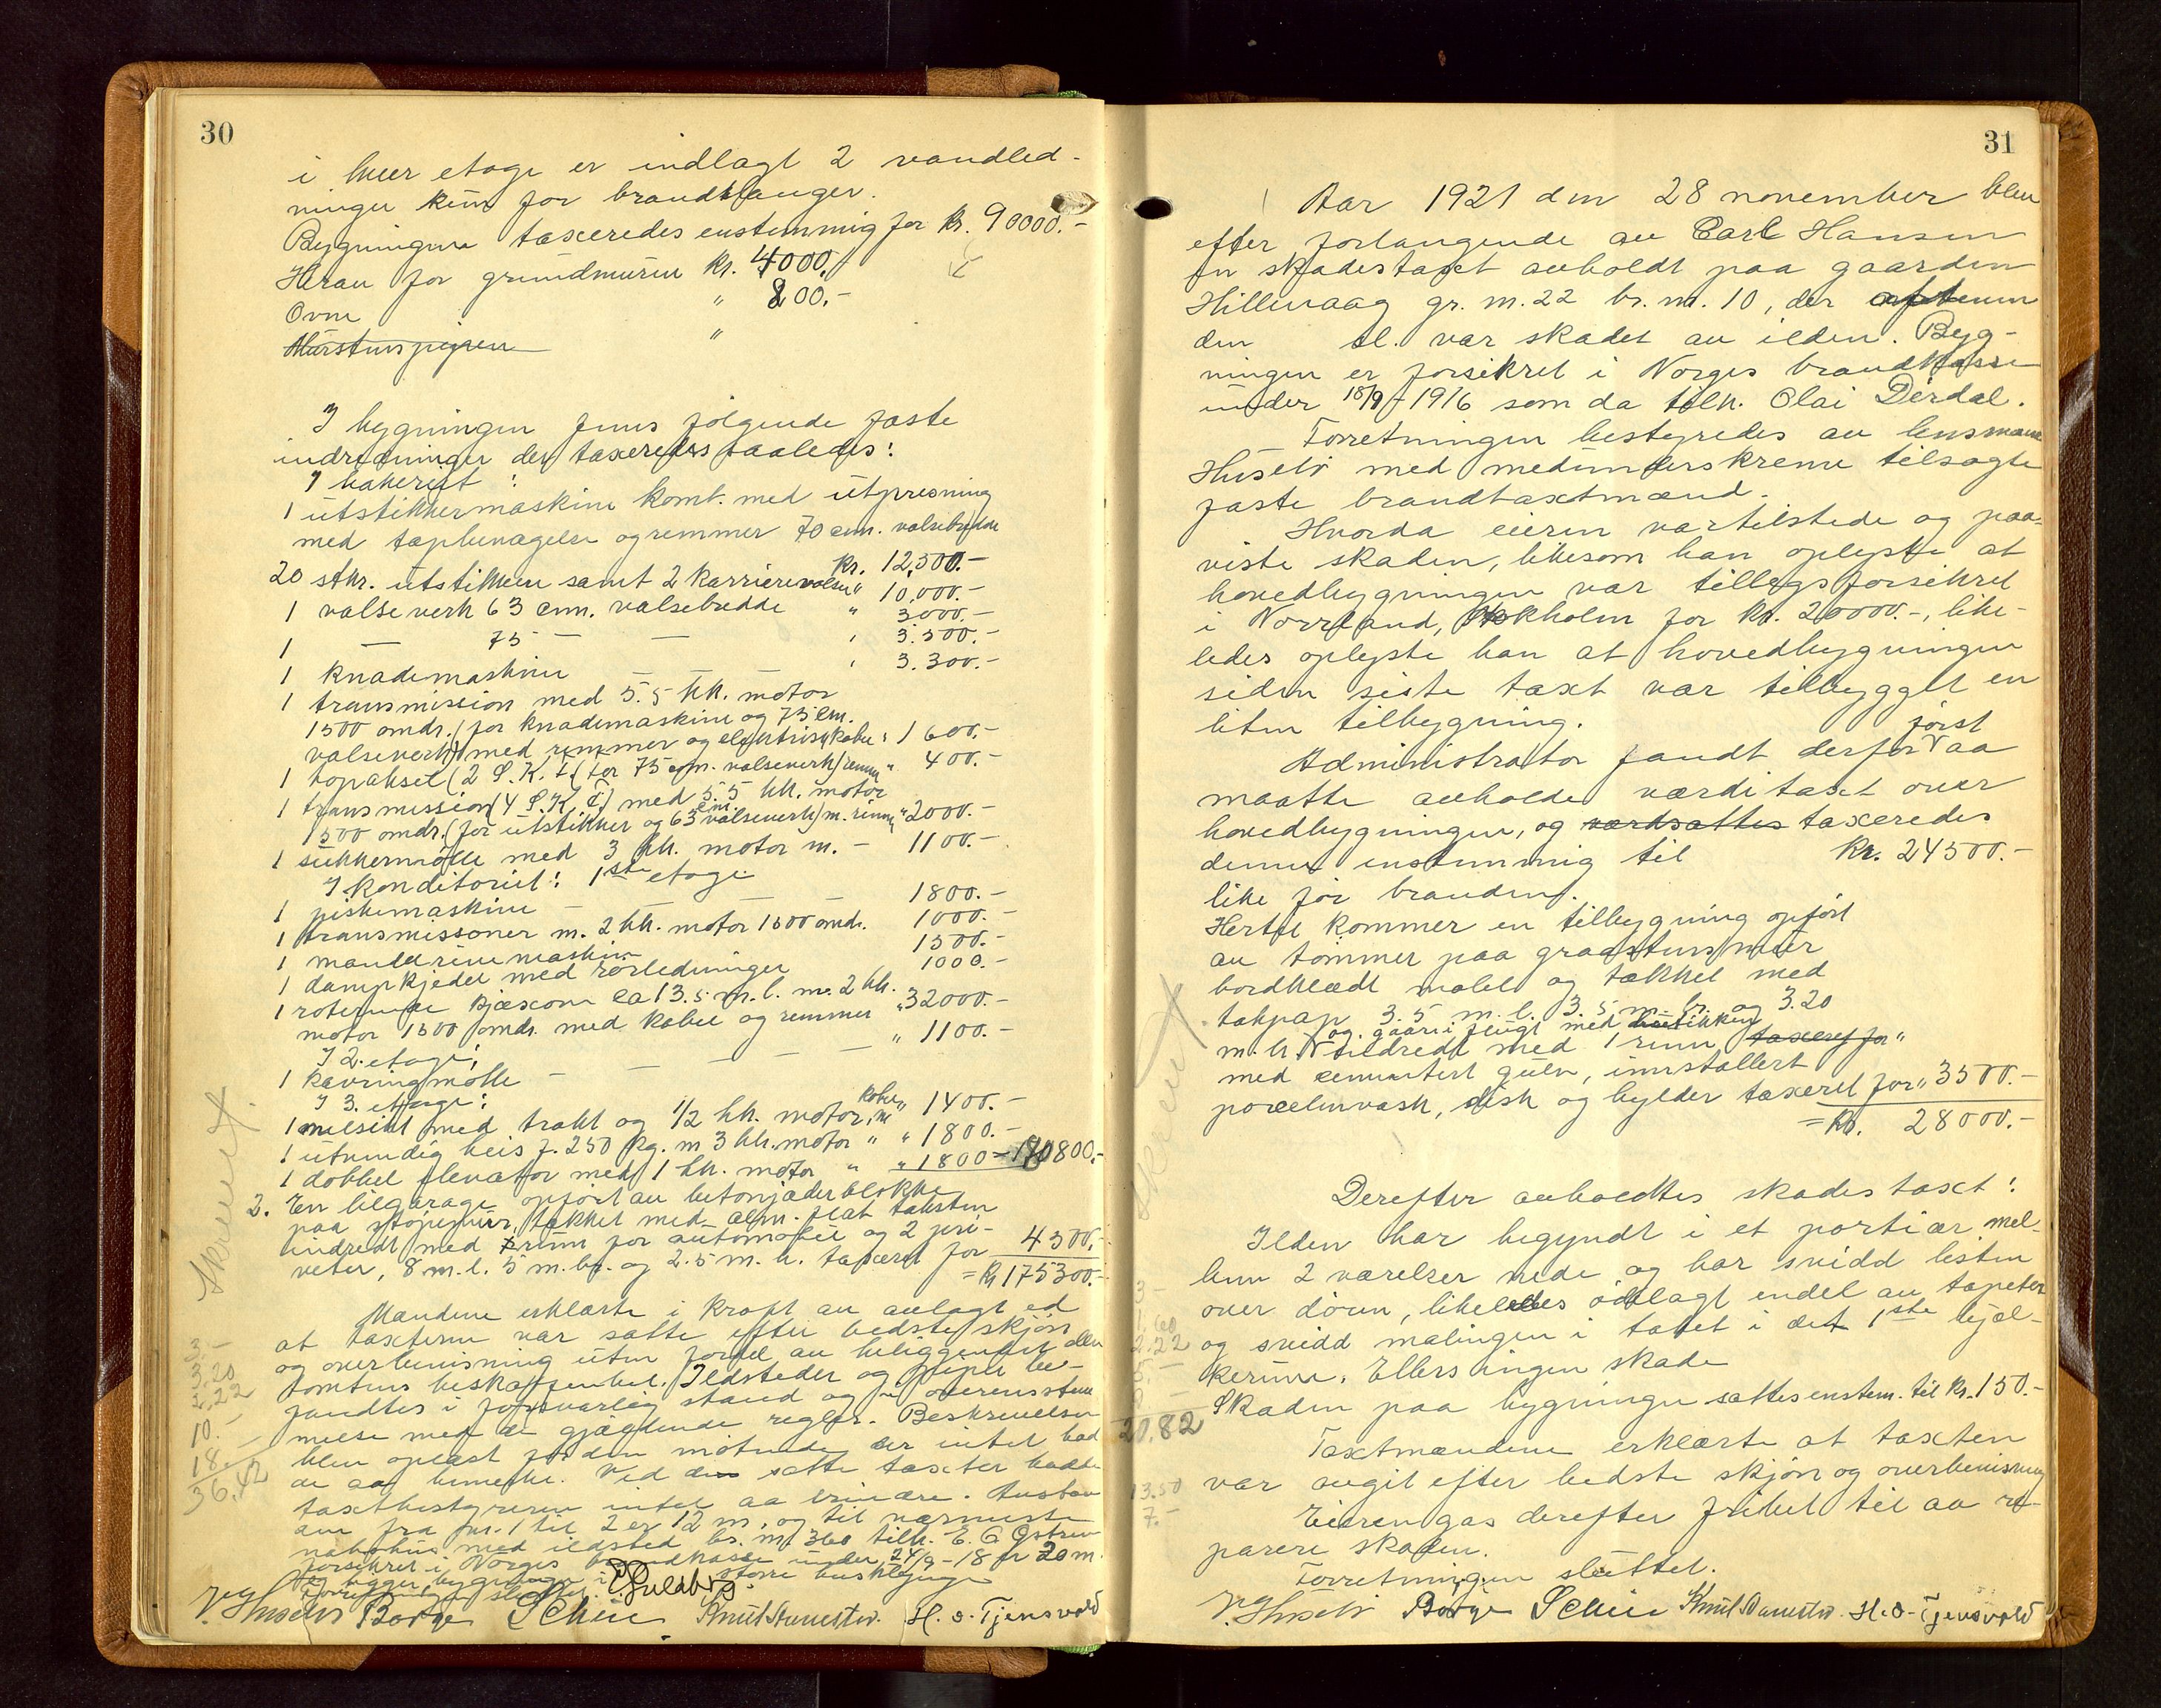 30
i hver etage er indlagt 2 vandled-
ninger kun for brandslanger.
Bygningene taxeredes enstemmig for kr. 90000.-
Herav for grundmuren kr. 4000.-
Ovne " 800.-
Murstenspipen "
I bygningen fins følgende faste
indretninger der taxeredes saaledes:
I bakeriet:
1 utstikkermaskine komb. med utpresning
med tapbevægelse og remmer 70 cm. valsebredde
kr. 12,500.-
20 stkr. utstikkere samt 2 karrierevalser " 10,000.-
1 valseverk 63 cm. valsebredde " 3000.-
1 — 75 — — " 3.500.-
1 knademaskine — — " 3.300.-
1 transmission med 5.5 hk. motor
1500 omdr. (for knademaskine og 75 cm.
valseverk) med remmer og elektrisk kabel " 1600.-
1 topaksel (2 S.K.F. (for 75 cm. valseverk) remm " 400.-
1 transmission (4 S.K.F.) med 5.5 hk. motor
1500 omdr. (for utstikker og 63 cm. valseverk) m. remm " 2000.-
1 sukkermølle med 3 hk. motor m. - 1100.-
I konditoriet: 1ste etage
1 piskemaskine — — — 1800.-
1 transmissoner m. 2 hk. motor 1500 omdr. 1000.-
1 mandelrivemaskin 1500.-
1 dampkjedel med rørledninger 1000.-
1 roterende kjæxovn ca 13.5 m.l. m. 2 hk.
motor 1500 omdr. med kabel og remmer " 32000.-
I 2. etage: " 1100.-
1 kavringmølle — — — —
I 3. etage:
1 melsikt med trakt og 1/2 hk. motor, m kabel " 1400.-
1 utvendig heis f. 250 kg. m 3 hk. motor " " 1800.-
1 dobbel elevator med 1 hk. motor " " 1800.- 170800.-
2. En bilgarage opført av betonjæderblokke
paa støpemur, tækket med alm. flat taksten
indredt med 1 rum for automobil og 2 pri-
veter, 8 m.l. 5 m.br. og 2.5 m.h. taxeret for 4500.-
= Kr 175300.-
Mændene erklærte i kraft av avlagt ed
at taxterne var satte efter bedste skjøn
og overbevisning uten fordel av beliggenhet eller
tomtens beskaffenhet. Ildsteder og piper be-
fandtes i forsvarlig stand og i overensstem
melse med de gjældende regler. Beskrivelsen
blev oplæst for den møtende der intet had
de aa bemerke. Ved de satte taxter hadde
taxtbestyreren intet aa erindre. Avstan
den fra nr. 1 til 2 er 12 m, og til nærmeste
nabohus med ildsted br. nr. 360 tilh. E. G. Østrem
forsikret i Norges brandkasse under 24/9-18 er 20 m.
og ligger bygningen i større husklynge
Forretningen sluttet. E. Guldbrg.
J. Husebø Borge Schie Knut Aunestv. H. S. Tjensvold
Skrevet
3.-
3,20
2,22
10.-
18.-
36.42
31
Aar 1921 den 28 november blev
efter forlangende av Carl Hansen
en skadestaxt avholdt paa gaarden
Hillevaag gr. nr. 22 br. nr. 10, der aftenen
den sl. var skadet av ilden. Byg-
ningen er forsikret i Norges brandkasse
under 18/9-1916 som da tilh. Olai Dirdal.
Forretningen bestyredes av lensmann
Husebø med medunderskrevne tilsagte
faste brandtaxtmænd.
Hvorda eieren var tilstede og paa-
viste skaden, likesom han oplyste at
hovedbygningen var tillægsforsikret
i Norrland, Stokholm for kr. 20000.-, like-
ledes oplyste han at hovedbygningen
siden siste taxt var tilbygget en
liten tilbygning.
Administrator fandt derfor først aa
maatte avholde værditaxt over
hovedbygningen, og værdsattes taxeredes
denne enstemmig til kr. 24500.-
like før branden.
Hertil kommer en tilbygning opført
av tømmer paa graastensmur
bordklædt malet og tækket med
takpap 3.5 m.l. 3.5 m.br. og 3.20
m.h. indredt med 1 rum taxeret for "
med cementert gulv, innstallert
porcelænvask, disk og hylder taxeret for " 3500.-
= Kr. 28000.-
Derefter avholdtes skadestaxt:
Ilden har begyndt i et portiær mel-
lem 2 værelser nede og har svidd listen
over døren, likeledes ødelagt endel av tapetet
og svidd malingen i taket i det 1ste bjæl-
kerum. Ellers ingen skade
Skaden paa bygningen sattes enstem. til kr. 150.-
Taxtmændene erklærte at taxten
var avgit efter bedste skjøn og overbevisning
Eieren gas derefter frihet til aa re-
parere skaden.
Forretningen sluttet.
J. Husebø Borge Schie Knut Aunestv. H. S. Tjensvold
Skrevet
3-
1.60
2.22
5.-
20.82
13.50
7.-